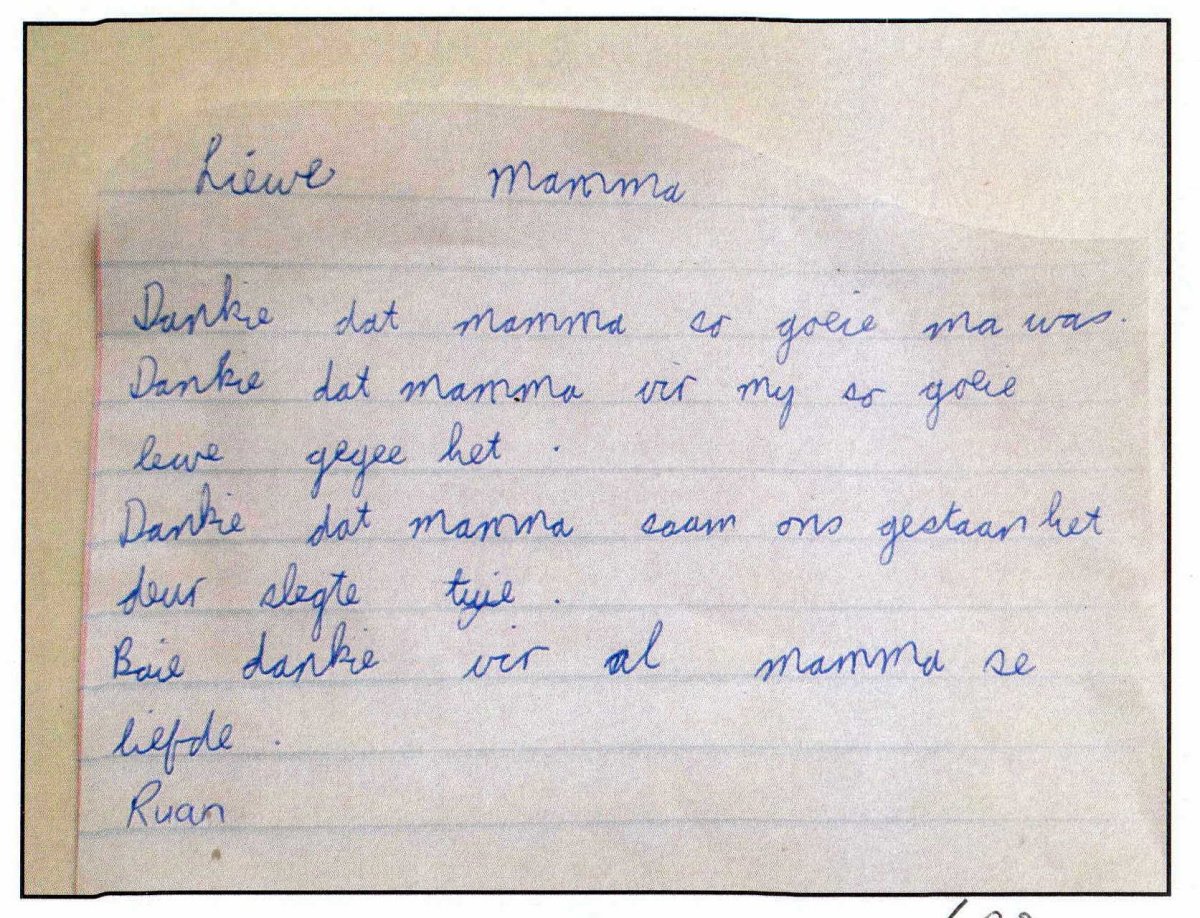 Liewe Mamma
Dankie dat mamma so goeie ma was.
Dankie dat mamma vir my so goeie
lewe gegee het.
Dankie dat mamma saam ons gestaan het
deur slegte tyie.
Baie dankie vir al mamma se
liefde.
Ruan